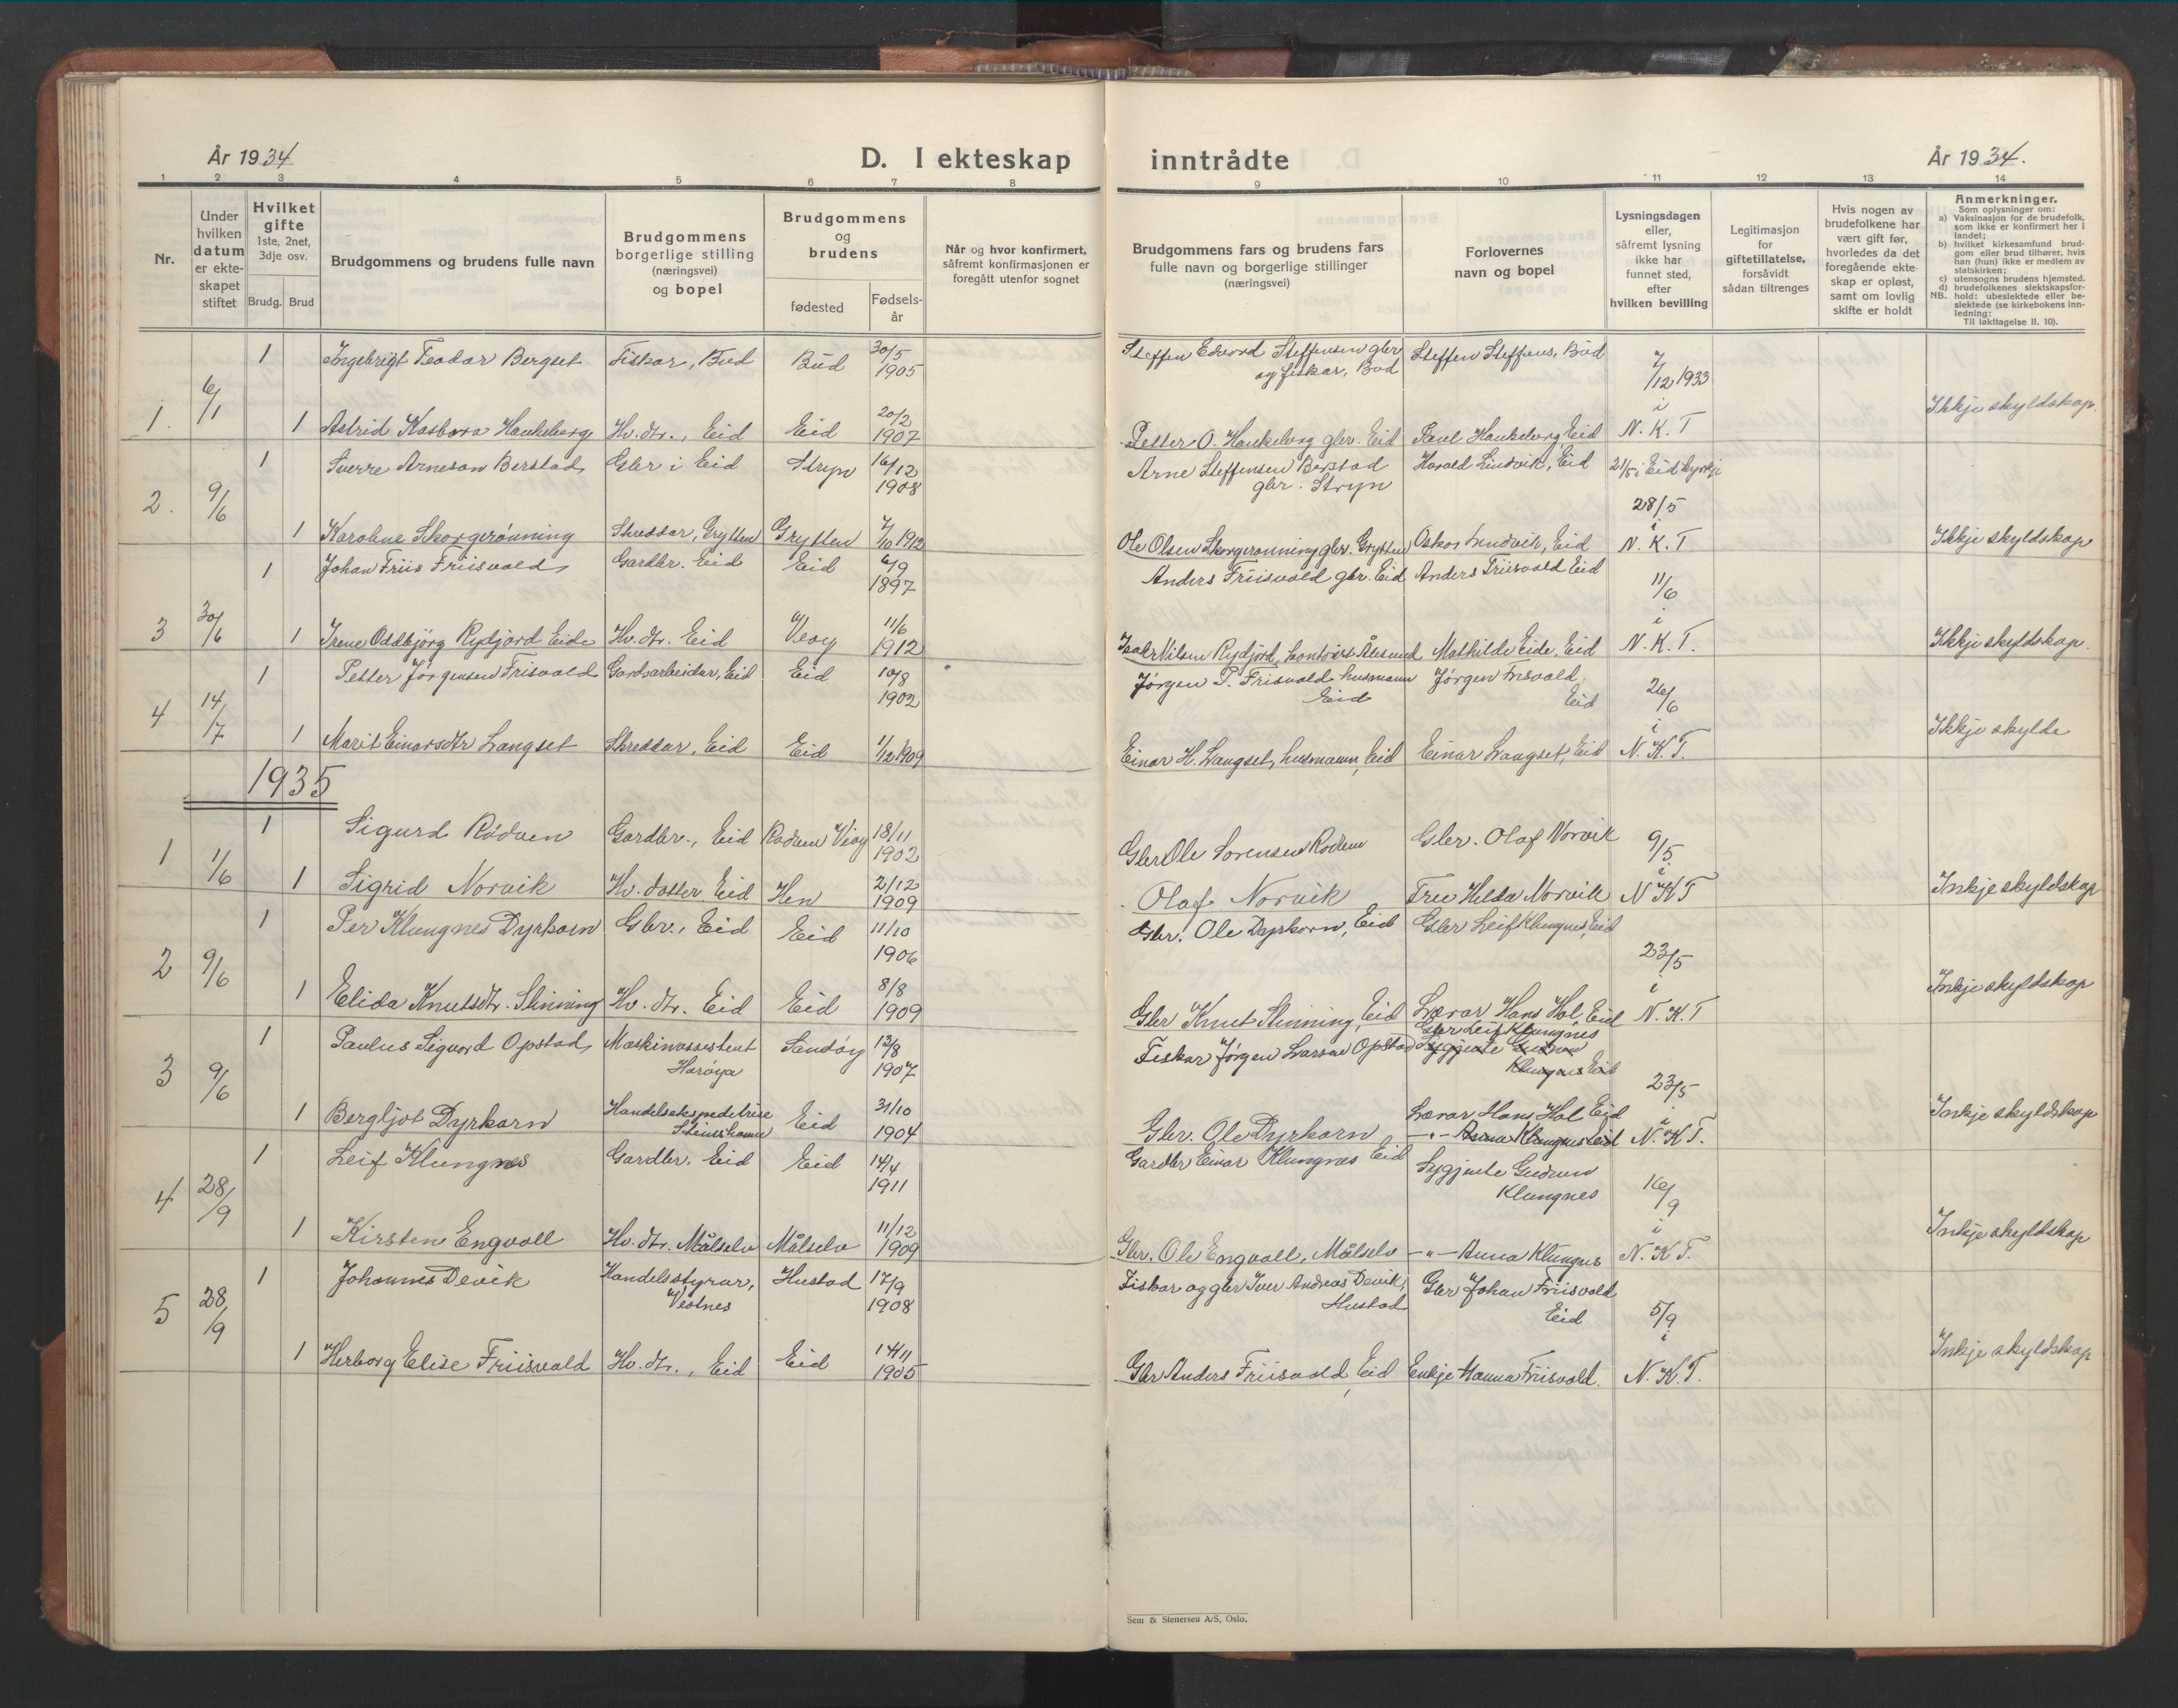 År 1934
D. I ekteskap
inntrådte
År 1934.
1 2 3 4 5 6 7 8 9 10 11 12 13 14
Nr.
Under
hvilken
datum
er ekte-
skapet
stiftet
Hvilket
gifte
1ste, 2net,
3dje osv.
Brudg. Brud
Brudgommens og brudens fulle navn
Brudgommens
borgerlige stilling
(næringsvei)
og bopel
Brudgommens
og
brudens
fødested
Fødsels-
år
Når og hvor konfirmert,
såfremt konfirmasjonen er
foregått utenfor sognet
Brudgommens fars og brudens fars
fulle navn og borgerlige stillinger
(næringsvei)
Forlovernes
navn og bopel
Lysningsdagen
eller,
såfremt lysning
ikke har
funnet sted,
efter
hvilken bevilling
Legitimasjon
for
giftetillatelse,
forsåvidt
sådan tiltrenges
Hvis nogen av
brudefolkene har
vært gift før,
hvorledes da det
foregående ekte-
skap er opløst,
samt om lovlig
skifte er holdt
Anmerkninger.
Som oplysninger om:
a) Vaksinasjon for de brudefolk,
som ikke er konfirmert her i
landet;
b) hvilket kirkesamfund brud-
gom eller brud tilhører, hvis
han (hun) ikke er medlem av
statskirken;
c) utensogns brudens hjemsted.
d) brudefolkenes slektskapsfor-
NB. hold: ubeslektede eller be-
slektede (se kirkebokens inn-
ledning:
Til iakttagelse II. 10).
1. 6/1
1 Ingebrigt Teodor Bergset Fiskar, Bud Bud 30/5 1905 Steffen Edvard Steffensen gbr
og fiskar, Bud Steffen Steffens, Bud 7/12 1933
1 Astrid Kasbara Haukeberg Hv. dtr., Eid Eid 20/2 1907 Petter O. Haukeberg gbr. Eid Paul Haukeberg, Eid i N. K. T Ikkje skyldskap.
2. 9/6
1 Sverre Arneson Berstad Gbr i Eid Stryn 16/12 1908 Arne Steffensen Berstad
gbr. Stryn Harald Lindvik, Eid 21/5 i Eid kyrkje
28/5
1 Karoline Skorgerønning Skreddar, Grytten Grytten 7/10 1912 Ole Olsen Skorgerønning gbr. Grytten Oskar Lindvik, Eid i N. K. T Ikkje skyldskap
3 30/6
1 Johan Friis Friisvold Gardbr. Eid Eid 6/9 1897 Anders Friisvold gbr. Eid Anders Friisvold Eid 11/6
1 Irene Oddbjörg Rydjord Eide Hv. dtr. Eid Veøy 11/6 1912 Isak Nilsen Rydjord, Ålesund Mathilde Eide, Eid i N. K. T. Ikkje skyldskap.
4 14/7
1 Petter Jørgensen Frisvold Gardsarbeidar, Eid Eid 10/8 1902 Jørgen P. Frisvold husmann
Eid Jørgen Frisvold,
Eid 26/6
1 Marit Einarsdtr Langset Skreddar, Eid Eid 1/12 1909 Einar H. Langset, husmann, Eid Einar Langset, Eid i N. K. T. Ikkje skylde
1935
1 1/6
1 Sigurd Rødven Gardbr., Eid Rødven Veøy 18/11 1902 Gbr Ole Sørensen Rødven Gbr. Olaf Norvik 9/5
1 Sigrid Norvik Hv. dotter Eid Hen 2/12 1909 Olaf Norvik Fru Helda Norvik i N K T Inkje skyldskap
2 9/6
1 Per Klungnes Dyrkorn Gbr., Eid Eid 11/10 1906 Gbr. Ole Dyrkorn, Eid Gbr Leif Klungnes, Eid 23/5
1 Elida Knutsdtr. Slinning Hv. dtr. Eid Eid 8/8 1909 Gbr Knut Slinning, Eid Lærar Hans Hol Eid i N. K. T Inkje skyldskap
3 9/6
1 Paulus Sigvard Opstad Maskinassistent
Harøya Sandøy 13/8 1907 Fiskar Jørgen Larsen Opstad Gbr Leif Klungnes
Sygjente Gudrun
Klungnes Eid 23/5
1 Bergljot Dyrkorn Handelsekspeditrise
Steinshamn Eid 31/10 1904 Gbr. Ole Dyrkorn Lærar Hans Hol Eid
-"- Anna Klungnes Eid i N. K T. Inkje skyldskap
4 28/9
1 Leif Klungnes Gardbr. Eid Eid 14/4 1911 Gardbr Einar Klungnes Eid Sygjente Gudrun
Klungnes 16/9
1 Kirsten Engvoll Hv. dtr. Målselv Målselv 11/12 1909 Gbr. Ole Engvoll, Målselv -"- Anna Klungnes i N. K T. Inkje skyldskap
5 28/9
1 Johannes Devik Handelsstyrar,
Vestnes Hustad 17/9 1908 Fiskar og gbr Iver Andreas Devik,
Hustad Gbr Johan Friisvold
Eid 5/9
1 Herborg Elise Friisvold Hv. dtr., Eid Eid 14/11 1905 Gbr Anders Friisvold, Eid Enkje Hanna Friisvold. i N. K. T. Inkje skyldskap
Sem & Stenersen A/S, Oslo.